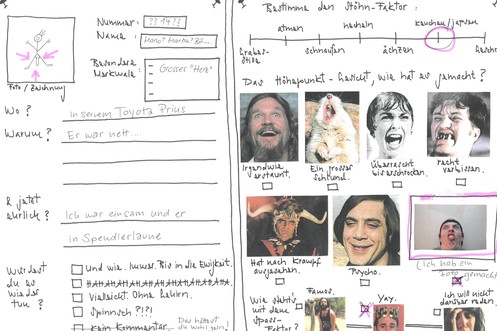 Nummer: ?? 14 ??
Name: Mario? Martin? Bill...
Besondere Merkmale: Grosses "Herz"
Foto / Zeichnung
Wo? In seinem Toyota Prius
Warum? Er war nett....
& jetzt ehrlich? Ich war einsam und er
in Spendierlaune
Würdest du es wieder tun?
Und wie. Immer. Bis in die Ewigkeit.
Vielleicht. Ohne
Spinnsch?!?!
Kein Kommentar.
Das hättest du wohl gern!
Bestimme den Stöhn-Faktor:
atmen
hecheln
keuchen/japsen
Grabesstille
schnaufen
ächzen
Das Höhepunkt-Gesicht, wie hat es gemacht?
Irgendwie erstaunt.
Ein grosser Schlund.
Überrascht bis erschrocken.
recht verbissen.
Hat nach Krampf ausgesehen.
Psycho.
(Ich hab ein Foto gemacht)
Wie aktiv war dein Spass-Faktor?
Famos.
Yay.
Ich will nicht darüber reden.